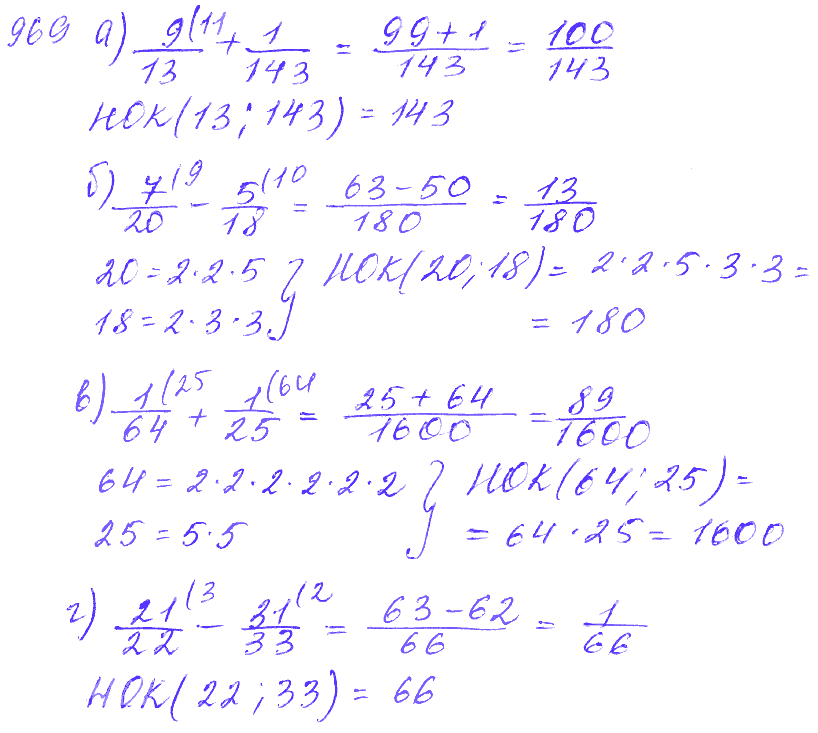 969 а) 9(11/13 + 1/143 = 99+1/143 = 100/143
НОК(13; 143) = 143
б) 7(9/20 - 5(10/18 = 63-50/180 = 13/180
20=2·2·5 } НОК(20; 18)= 2·2·5·3·3=
18=2·3·3 } = 180
в) 1(25/64 + 1(64/25 = 25+64/1600 = 89/1600
64=2·2·2·2·2·2 } НОК(64; 25)=
25=5·5 } = 64·25 = 1600
г) 21(3/22 - 31(2/33 = 63-62/66 = 1/66
НОК(22; 33) = 66